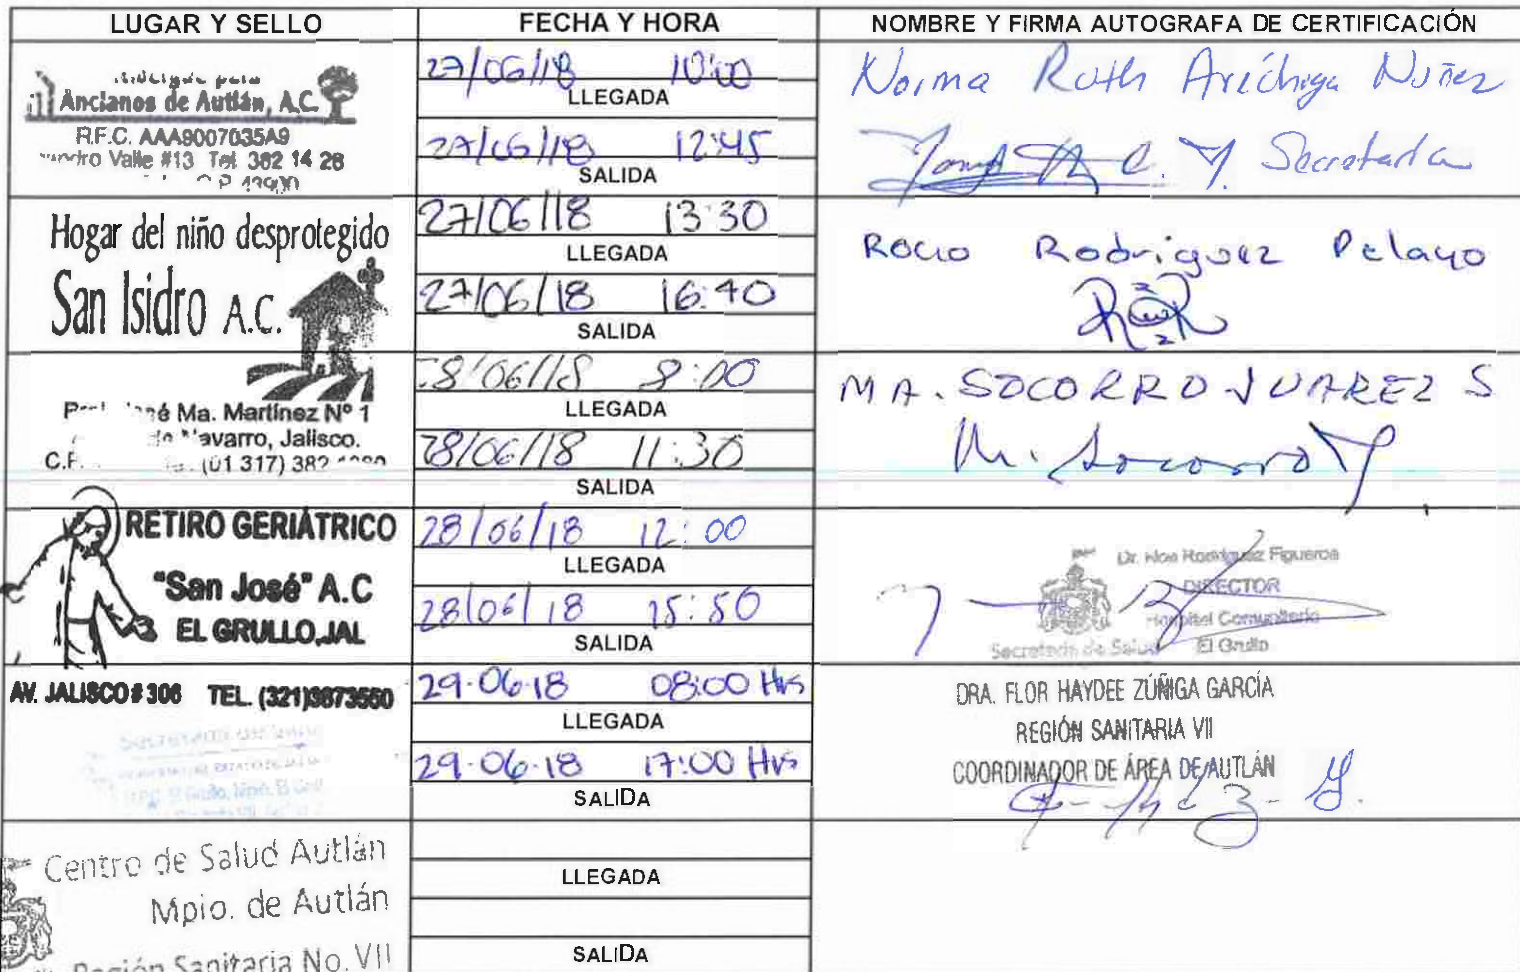 LUGAR Y SELLO
FECHA Y HORA
NOMBRE Y FIRMA AUTOGRAFA DE CERTIFICACIÓN
Ancianos de Autlán, A.C.
R.F.C. AAA9007035A9
Valle #13 Tel. 382 14 28
27/06/18 10:00
LLEGADA
27/06/18 12:45
SALIDA
Norma Ruth Aréchiga Nuñez
Secretaria
Hogar del niño desprotegido
San Isidro A.C.
27/06/18 13:30
LLEGADA
27/06/18 16:40
SALIDA
Rocio Rodriguez Pelayo
Ma. Martínez Nº 1
Navarro, Jalisco.
(01 317) 382
28/06/18 8:00
LLEGADA
28/06/18 11:30
SALIDA
MA. SOCORRO JUAREZ S
M. Socorro J
RETIRO GERIÁTRICO
"San José" A.C
EL GRULLO,JAL
28/06/18 12:00
LLEGADA
28/06/18 15:50
SALIDA
Dr. Noe Rodríguez Figueroa
DIRECTOR
Hospital Comunitario
El Grullo
Secretaría de Salud
AV. JALISCO # 306 TEL. (321)3873550
29.06.18 08:00 Hrs
LLEGADA
29.06.18 17:00 Hrs
SALIDA
DRA. FLOR HAYDEE ZÚÑIGA GARCÍA
REGIÓN SANITARIA VII
COORDINADOR DE ÁREA DE AUTLÁN
Centro de Salud Autlán
Mpio. de Autlán
Región Sanitaria No. VII
LLEGADA
SALIDA